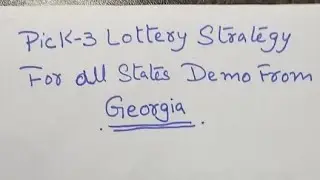 Pick-3 Lottery Strategy
For all States Demo From
Georgia.